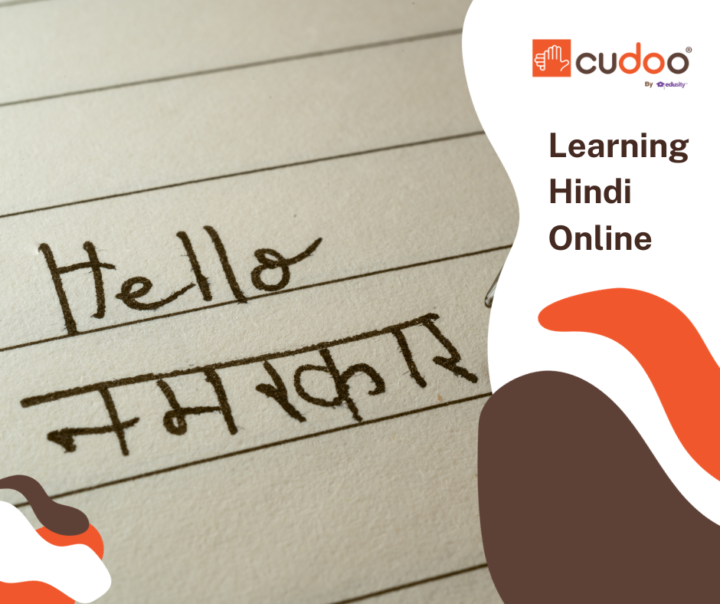 cudoo®
By edusity
Learning
Hindi
Online
Hello
नमस्कार